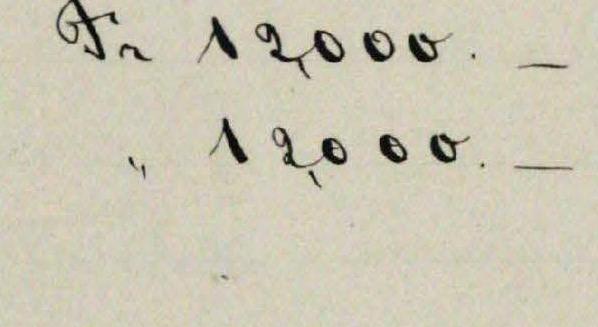 Fr 12,000. —
„ 12,000. —